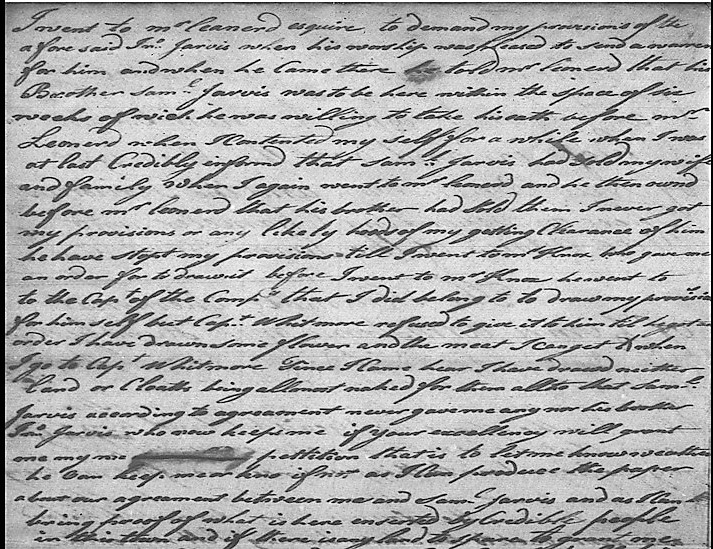 I went to mr leanerd esquire to demand my provisions of the
afore said Jno. Jarvis when his worship was pleased to send a warren
for him and when he Came there he told mr lenerd that his
Brother Saml. Jarvis was to be here within the space of six
weeks of wich he was willing to take his oath before mr
Leonerd when I Contented my self for a while when I was
at last Credibly informd that Saml. Jarvis had sold my wife
and family when I again went to mr leonerd and he then ownd
before mr leonerd that his brother had Sold them I never got
my provisions or any likely hood of my getting Clearance of him
he have stopt my provisions till I went to mr Knox who gave me
an order for to draw it before I went to mr Knox he went to
to the Capt of the Comp that I did belong to to draw my provision
for him self but Capt. Whitmore refused to give it to him til he got an
order I have drawn some flower and the meet I Canget when
I go to Capt Whitmore Since I Came hear I have drawd neither
Land or Cloaths being allmost naked for them all to that Saml.
Jarvis acording to agreament never gave me any nor his brother
Jno. Jarvis who now keeps me if your excellency will grant
me my petetion that is to let me know weather
he Can keep me or no if not as I Can produce the paper
about our agreement between me and Saml. Jarvis and as I Can
bring proof of what is here enserted by Credible people
in this town and if there is any land to spare to grant me